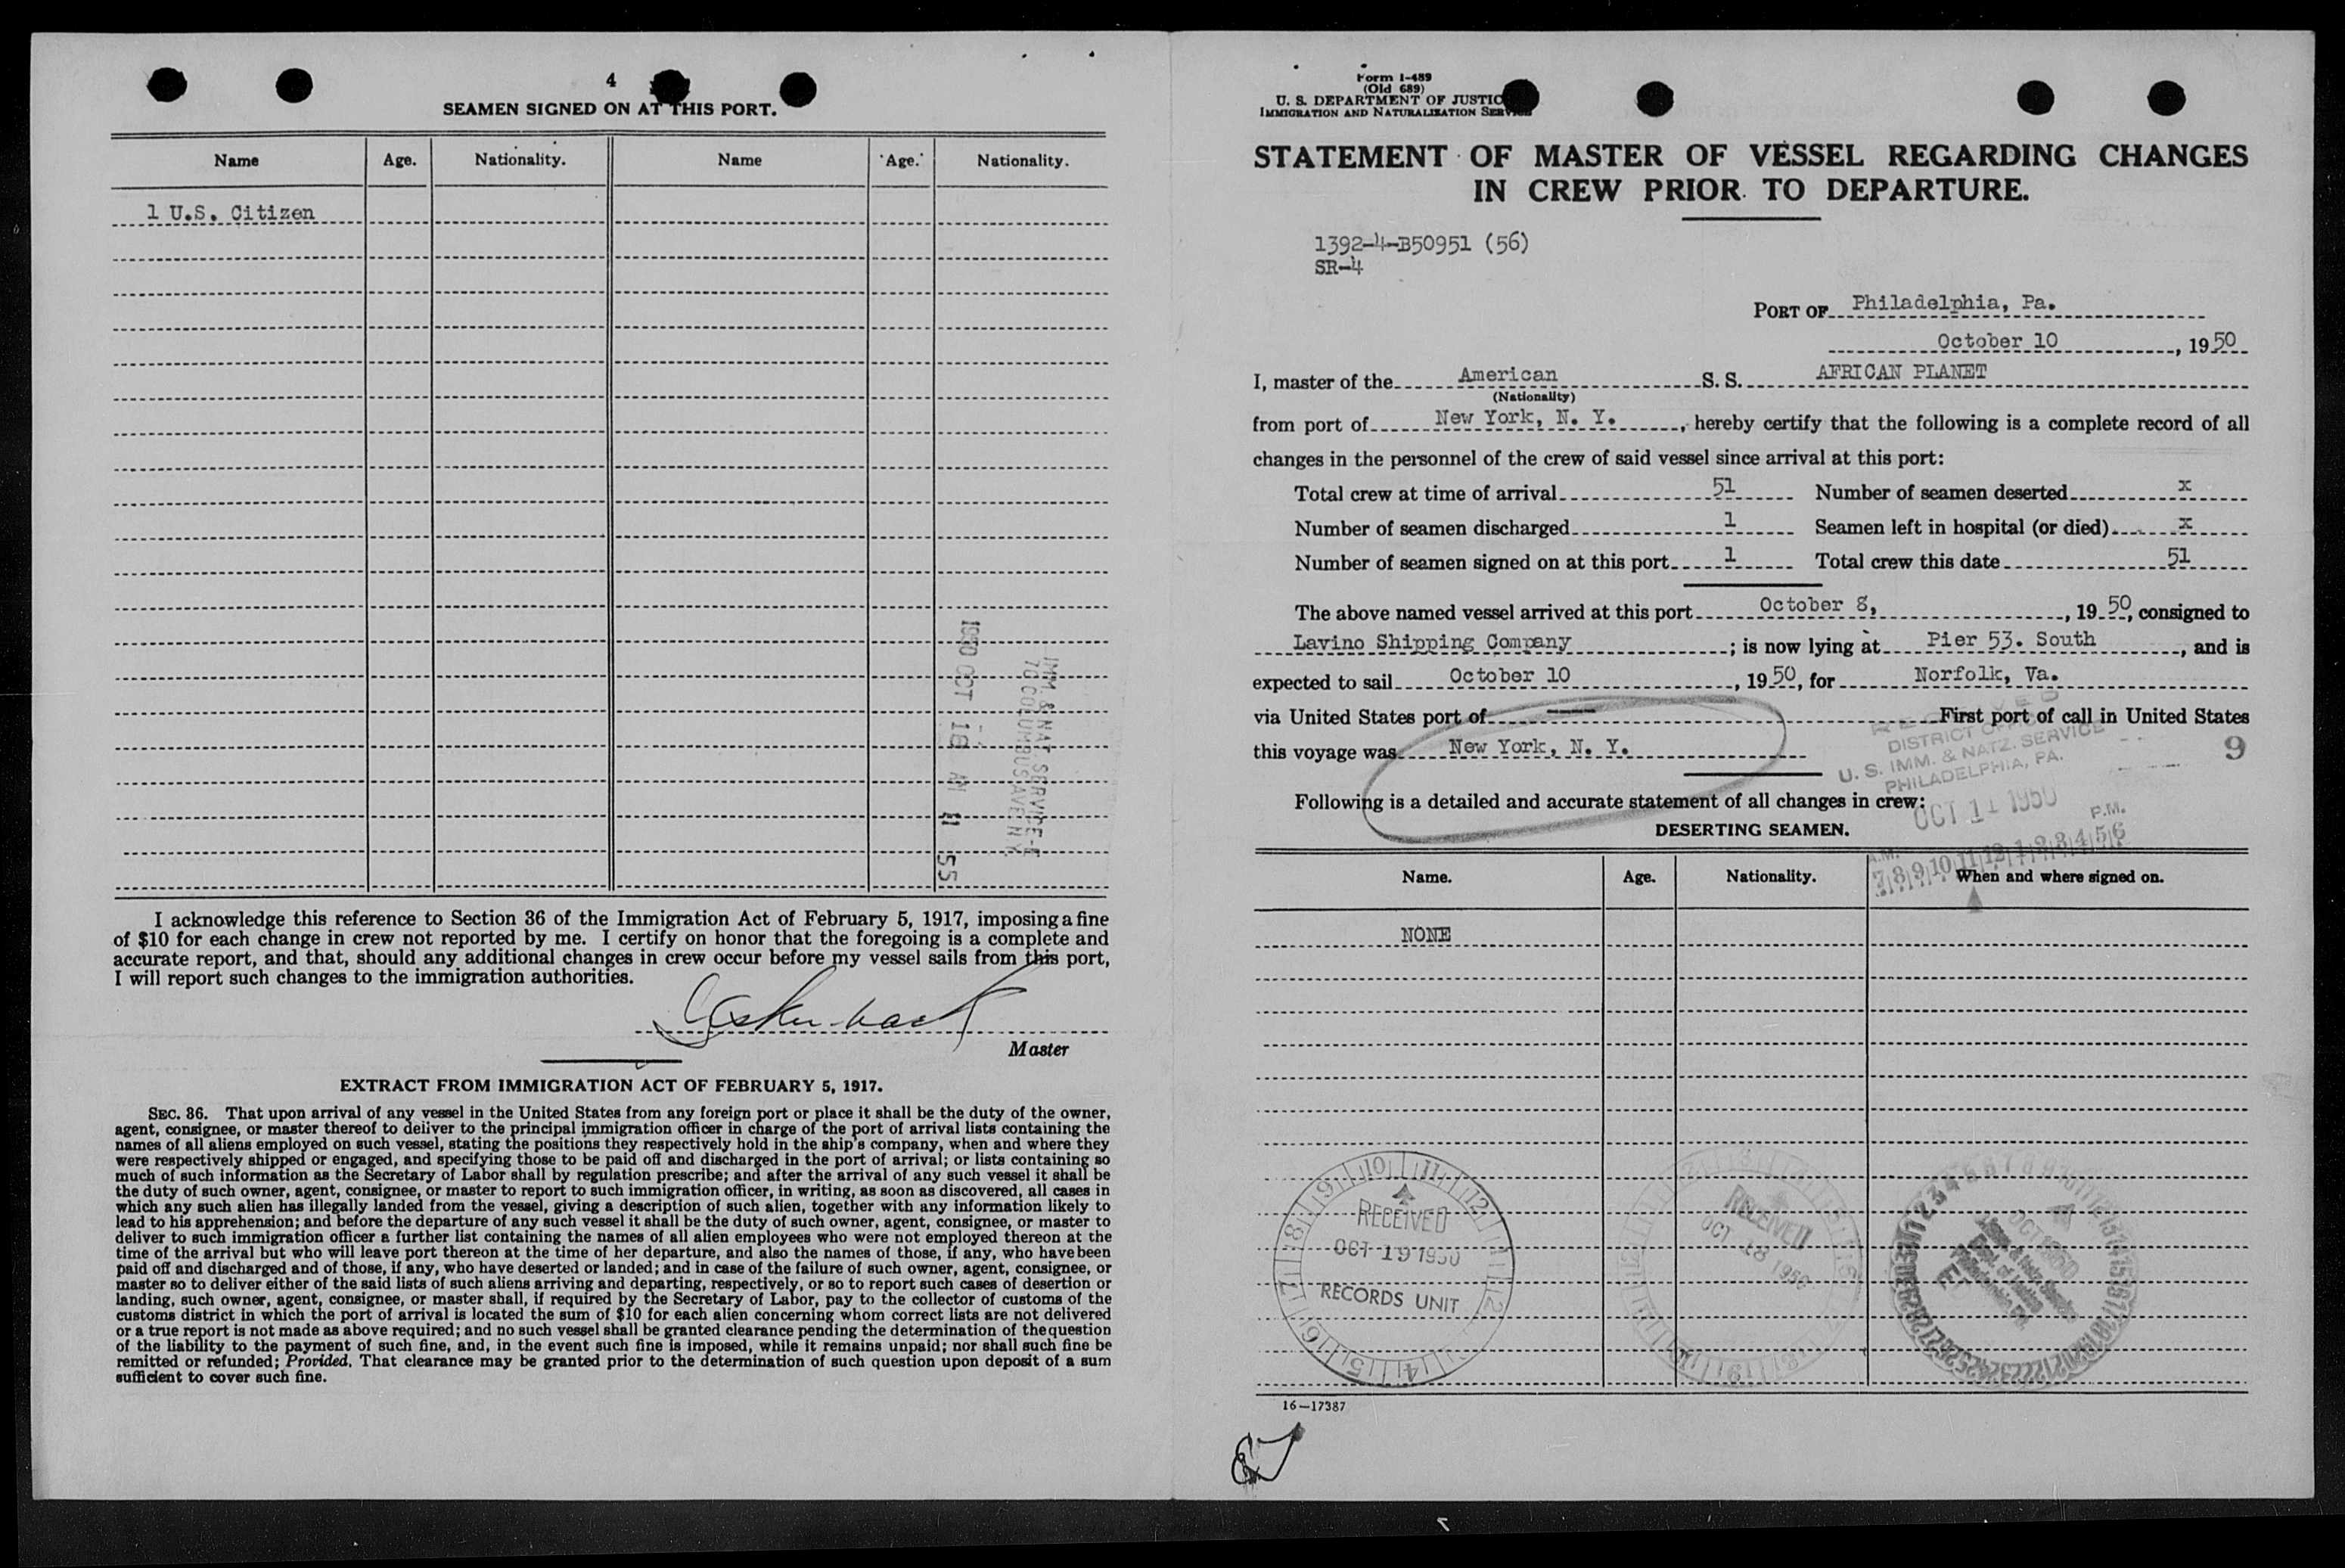 4
SEAMEN SIGNED ON AT THIS PORT.
Name Age. Nationality. Name Age. Nationality.
1 U.S. Citizen
IMM. & NAT. SERVICE-E
70 COLUMBUS AVE N.Y.
1950 OCT 18 AM 11 55
I acknowledge this reference to Section 36 of the Immigration Act of February 5, 1917, imposing a fine
of $10 for each change in crew not reported by me. I certify on honor that the foregoing is a complete and
accurate report, and that, should any additional changes in crew occur before my vessel sails from this port,
I will report such changes to the immigration authorities.
Master
EXTRACT FROM IMMIGRATION ACT OF FEBRUARY 5, 1917.
SEC. 36. That upon arrival of any vessel in the United States from any foreign port or place it shall be the duty of the owner,
agent, consignee, or master thereof to deliver to the principal immigration officer in charge of the port of arrival lists containing the
names of all aliens employed on such vessel, stating the positions they respectively hold in the ship's company, when and where they
were respectively shipped or engaged, and specifying those to be paid off and discharged in the port of arrival; or lists containing so
much of such information as the Secretary of Labor shall by regulation prescribe; and after the arrival of any such vessel it shall be
the duty of such owner, agent, consignee, or master to report to such immigration officer, in writing, as soon as discovered, all cases in
which any such alien has illegally landed from the vessel, giving a description of such alien, together with any information likely to
lead to his apprehension; and before the departure of any such vessel it shall be the duty of such owner, agent, consignee, or master to
deliver to such immigration officer a further list containing the names of all alien employees who were not employed thereon at the
time of the arrival but who will leave port thereon at the time of her departure, and also the names of those, if any, who have been
paid off and discharged and of those, if any, who have deserted or landed; and in case of the failure of such owner, agent, consignee, or
master so to deliver either of the said lists of such aliens arriving and departing, respectively, or so to report such cases of desertion or
landing, such owner, agent, consignee, or master shall, if required by the Secretary of Labor, pay to the collector of customs of the
customs district in which the port of arrival is located the sum of $10 for each alien concerning whom correct lists are not delivered
or a true report is not made as above required; and no such vessel shall be granted clearance pending the determination of the question
of the liability to the payment of such fine, and, in the event such fine is imposed, while it remains unpaid; nor shall such fine be
remitted or refunded; Provided, That clearance may be granted prior to the determination of such question upon deposit of a sum
sufficient to cover such fine.
Form I-489
(Old 689)
U. S. DEPARTMENT OF JUSTIC
IMMIGRATION AND NATURALIZATION SERVICE
STATEMENT OF MASTER OF VESSEL REGARDING CHANGES
IN CREW PRIOR TO DEPARTURE.
1392-4-B50951 (56)
SR-4
PORT OF Philadelphia, Pa.
October 10, 1950
I, master of the American S. S. AFRICAN PLANET
(Nationality)
from port of New York, N. Y., hereby certify that the following is a complete record of all
changes in the personnel of the crew of said vessel since arrival at this port:
Total crew at time of arrival 51 Number of seamen deserted x
Number of seamen discharged 1 Seamen left in hospital (or died) x
Number of seamen signed on at this port 1 Total crew this date 51
The above named vessel arrived at this port October 8, , 1950, consigned to
Lavino Shipping Company; is now lying at Pier 53. South, and is
expected to sail October 10, 1950, for Norfolk, Va.
via United States port of ---- First port of call in United States
this voyage was New York, N. Y.
9
RECEIVED
DISTRICT OFFICE
U. S. IMM. & NATZ. SERVICE
PHILADELPHIA, PA.
OCT 11 1950
A.M. P.M.
7|8|9|10|11|12|1|2|3|4|5|6
Following is a detailed and accurate statement of all changes in crew:
DESERTING SEAMEN.
Name. Age. Nationality. When and where signed on.
NONE
RECEIVED
OCT 19 1950
RECORDS UNIT
RECEIVED
OCT 18 1950
16—17387